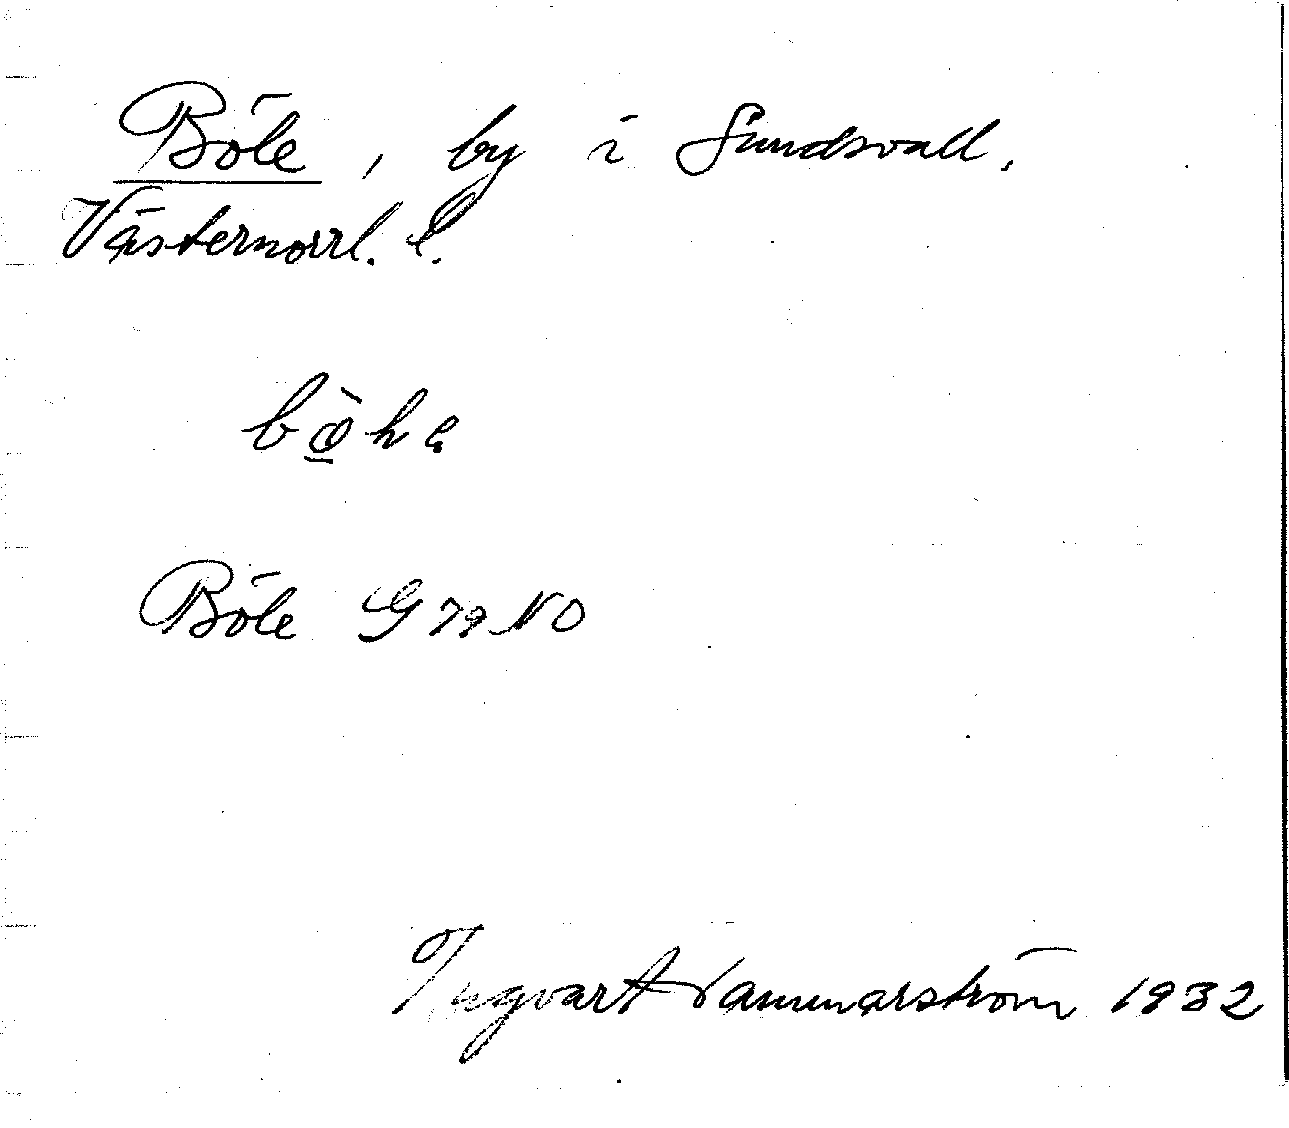 Böle, by i Sundsvall,
Västernorrl. l.
Böle G 79 NO
Ingvart Hammarström 1932